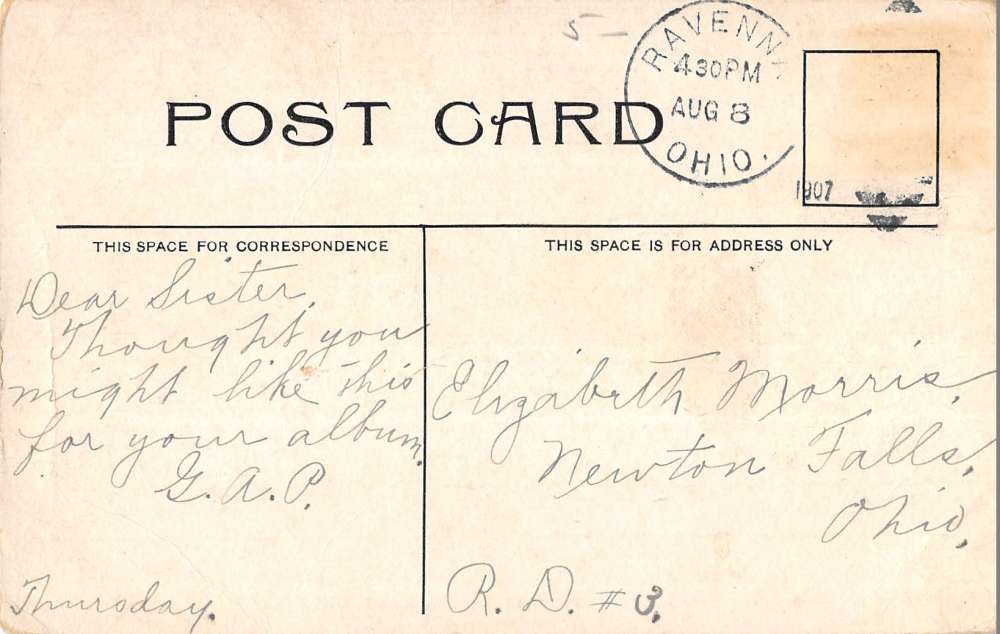 5-
RAVENNA
4 30 PM
AUG 8
OHIO.
1907
POST CARD
THIS SPACE FOR CORRESPONDENCE
THIS SPACE IS FOR ADDRESS ONLY
Dear Sister,
Thought you
might like this
for your album.
G. A. P.
Thursday.
Elizabeth Morris,
Newton Falls,
Ohio,
R. D. #3,